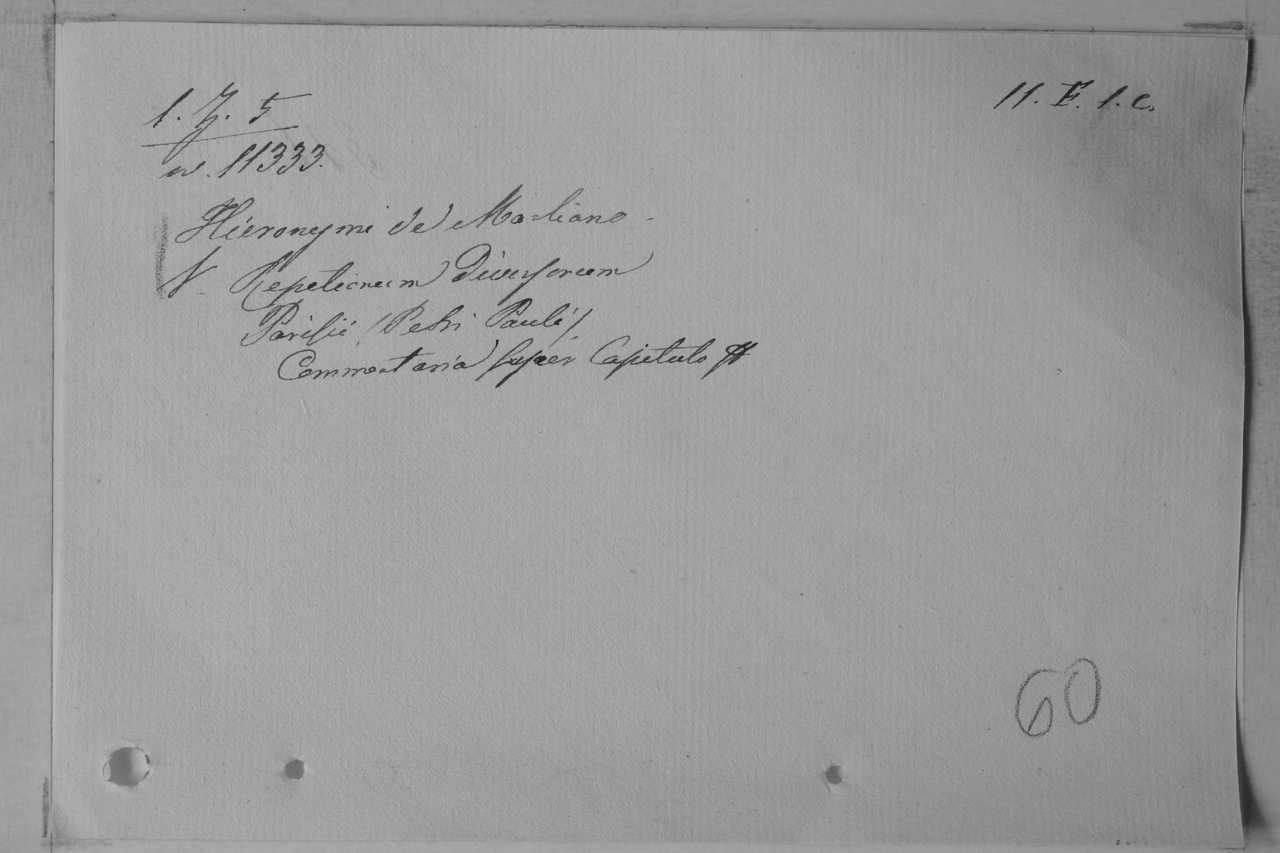 1. Z. 5
11. F. 1. c.
nr. 11333.
Hieronymi de Marliano -
V. Repetionum Diversorum
Parisii (Petri Pauli)
Commentaria super Capitulo
60